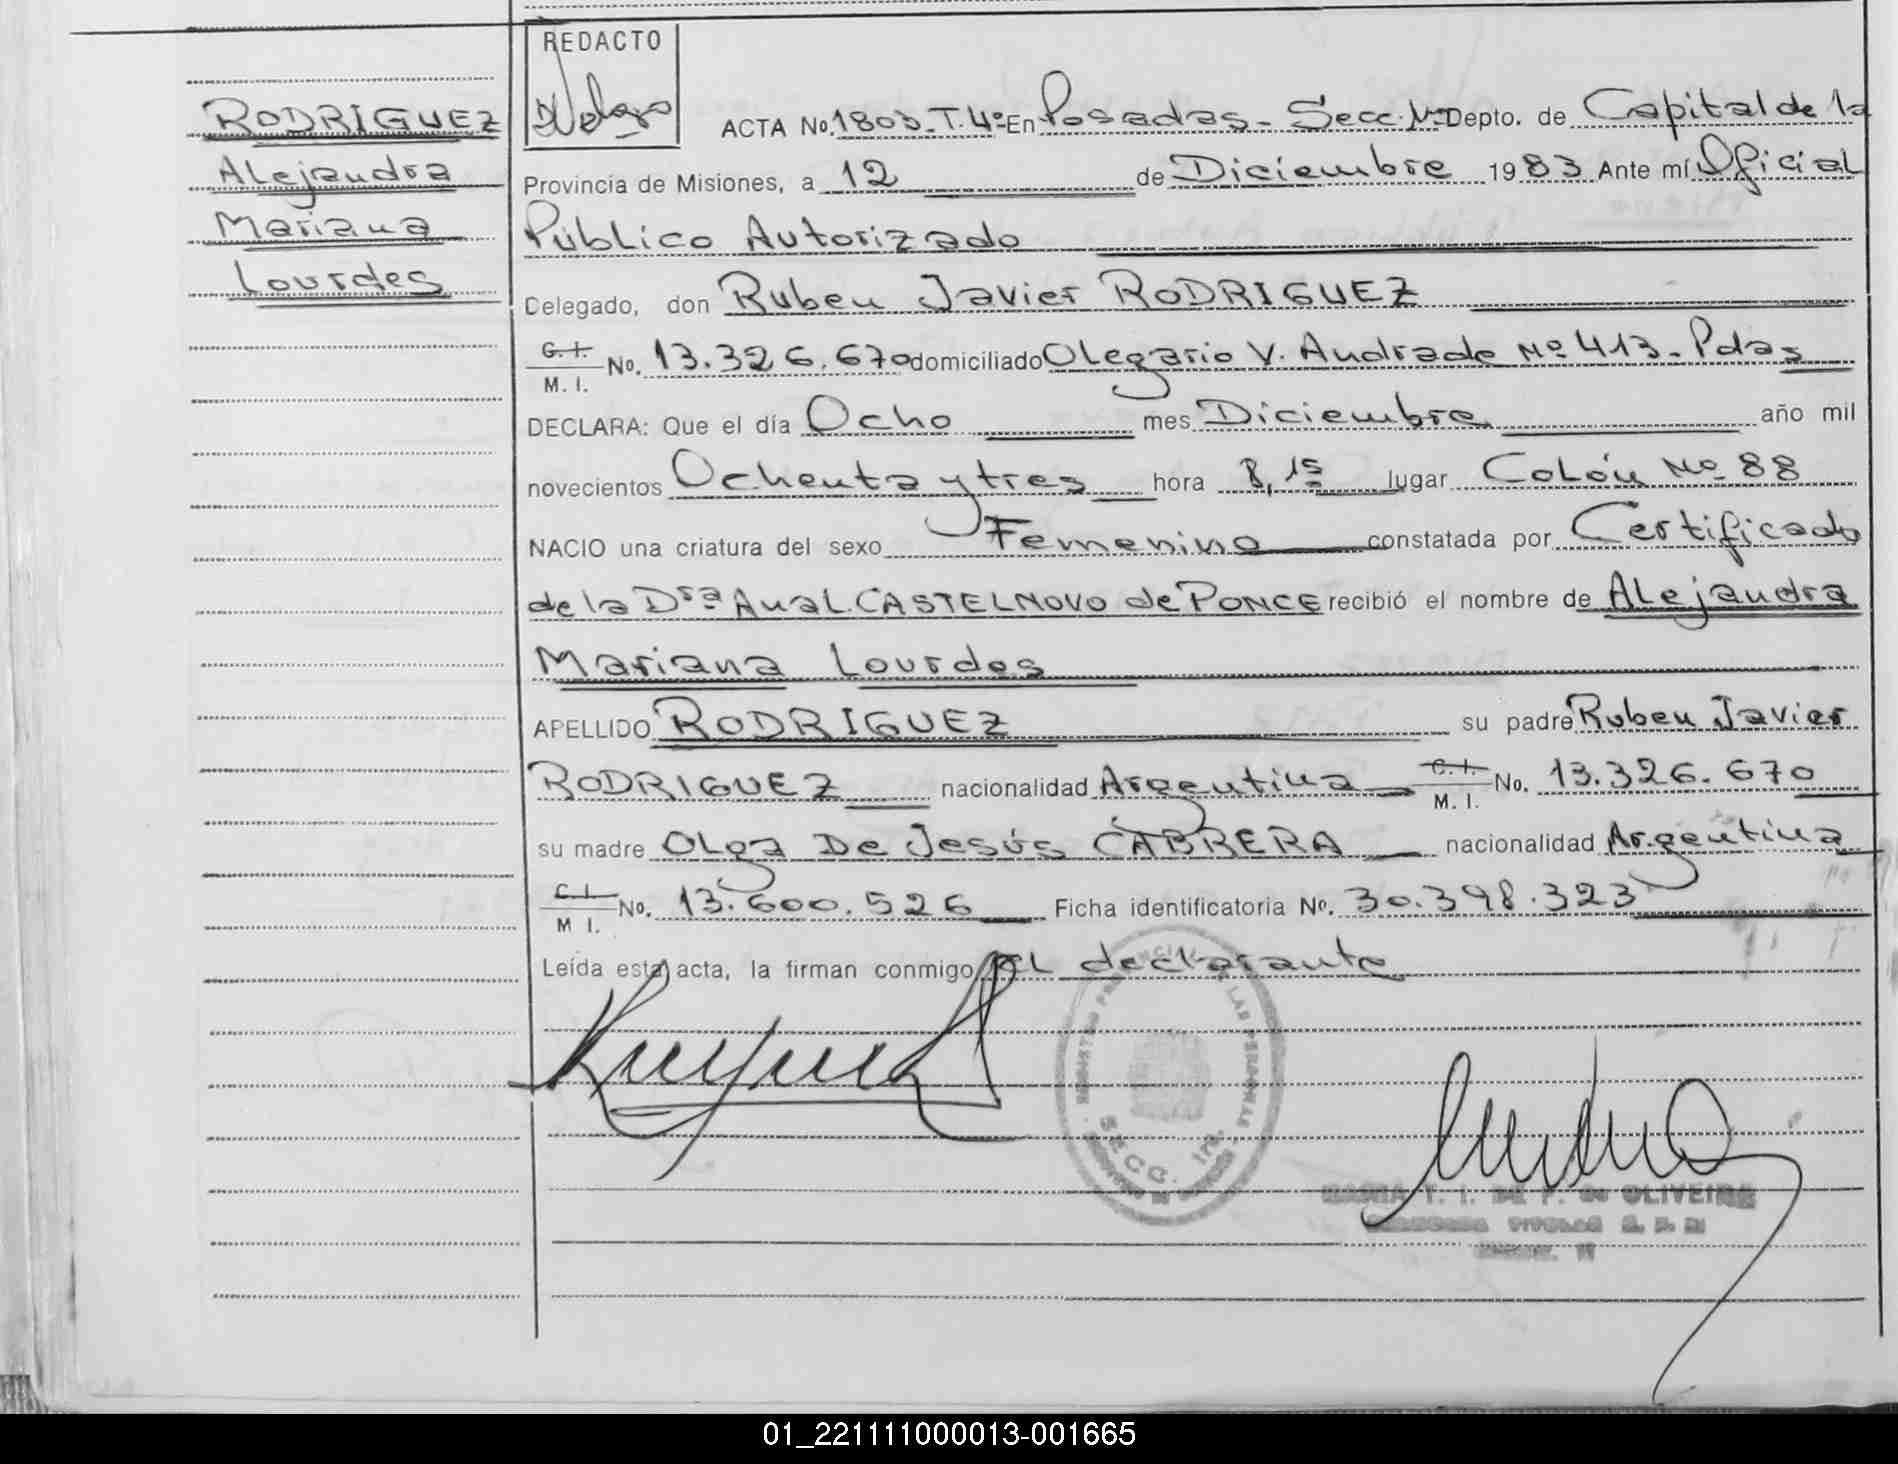 REDACTO
RODRIGUEZ
Alejandra
Mariana
Lourdes
ACTA No. 1803. T. 4º En Posadas - Secc. Depto. de Capital de la
Provincia de Misiones, a 12 de Diciembre 1983 Ante mí Oficial
Público Autorizado
Delegado, don Ruben Javier RODRIGUEZ
C. I. M. I. No. 13.326.670 domiciliado Olegario V. Andrade Nº 413 - Pdas
DECLARA: Que el día Ocho mes Diciembre año mil
novecientos Ochenta y tres hora 8,15 lugar Colón Nº 88
NACIO una criatura del sexo Femenino constatada por Certificado
de la Dra. Ana L. CASTELNOVO de PONCE recibió el nombre de Alejandra
Mariana Lourdes
APELLIDO RODRIGUEZ su padre Ruben Javier
RODRIGUEZ nacionalidad Argentina C. I. M. I. No. 13.326.670
su madre Olga De Jesús CABRERA nacionalidad Argentina
C. I. M I. No. 13.600.526 Ficha identificatoria No. 30.398.323
Leída esta acta, la firman conmigo, el declarante
LAS PERSONAS
SECC.
T. I. DE P. OLIVEIRA
TITULAR
01_221111000013-001665